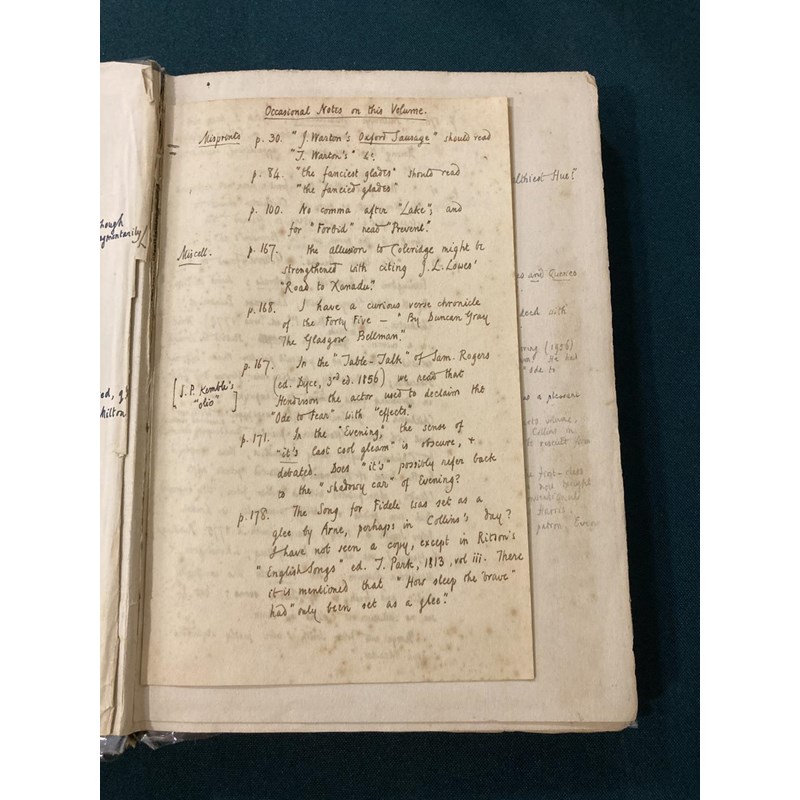 hough
ymontanity
ed, of
Milton
Occasional Notes on this Volume.
Misprints p. 30. "J. Warton's Oxford Sausage" should read
"T. Warton's" &c
p. 84. "the fanciest glades" should read
"the fancied glades"
p. 100. No comma after "Lake"; and
for "Forbid" read "Prevent."
Miscell. p. 167. The allusion to Coleridge might be
strengthened with citing J. L. Lowes'
"Road to Xanadu".
p. 168. I have a curious verse chronicle
of the Forty Five — "By Duncan Gray
The Glasgow Bellman."
p. 167. In the "Table-Talk" of Sam. Rogers
(ed. Dyce, 3rd ed. 1856) we read that
[J. P. Kemble's
"olio"]
Henderson the actor used to declaim the
"Ode to Fear" with "effects."
p. 171. In the "Evening," the sense of
"it's last cool gleam" is obscure, +
debated. Does "it's" possibly refer back
to the "shadowy car" of Evening?
p. 178. The Song for Fidele was set as a
glee by Arne, perhaps in Collins's day?
I have not seen a copy, except in Ritson's
"English Songs" ed. T. Park, 1813, vol iii. There
it is mentioned that "How sleep the brave"
had "only been set as a glee".
lthiest Hue!
es and Queries
deed with
(1956)
He had
"Ode to
as a pleasant
volume,
Collins
a first-class
now bought
petson, Evan